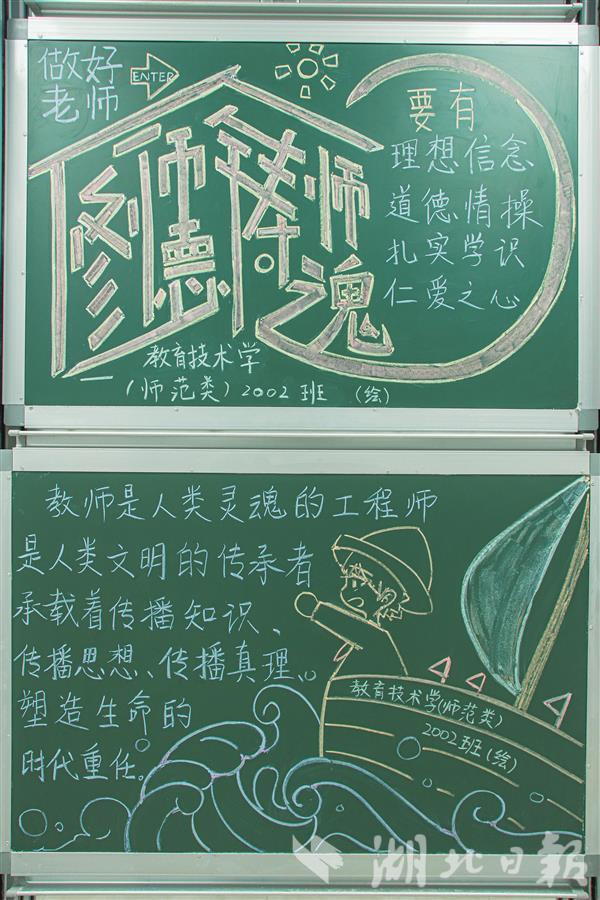 做好
老师
ENTER
修师德 铸师魂
要有
理想信念
道德情操
扎实学识
仁爱之心
教育技术学
(师范类) 2002班 (绘)
教师是人类灵魂的工程师
是人类文明的传承者
承载着传播知识、
传播思想、传播真理、
塑造生命的
时代重任。
教育技术学(师范类)
2002班(绘)
湖北日报